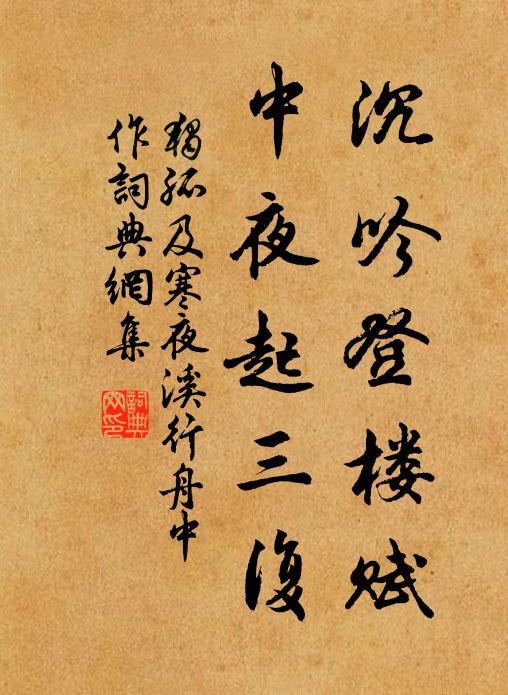 沉吟登楼赋
中夜起三復
獨孤及寒夜溪行舟中
作詞典網集
詞典
网印